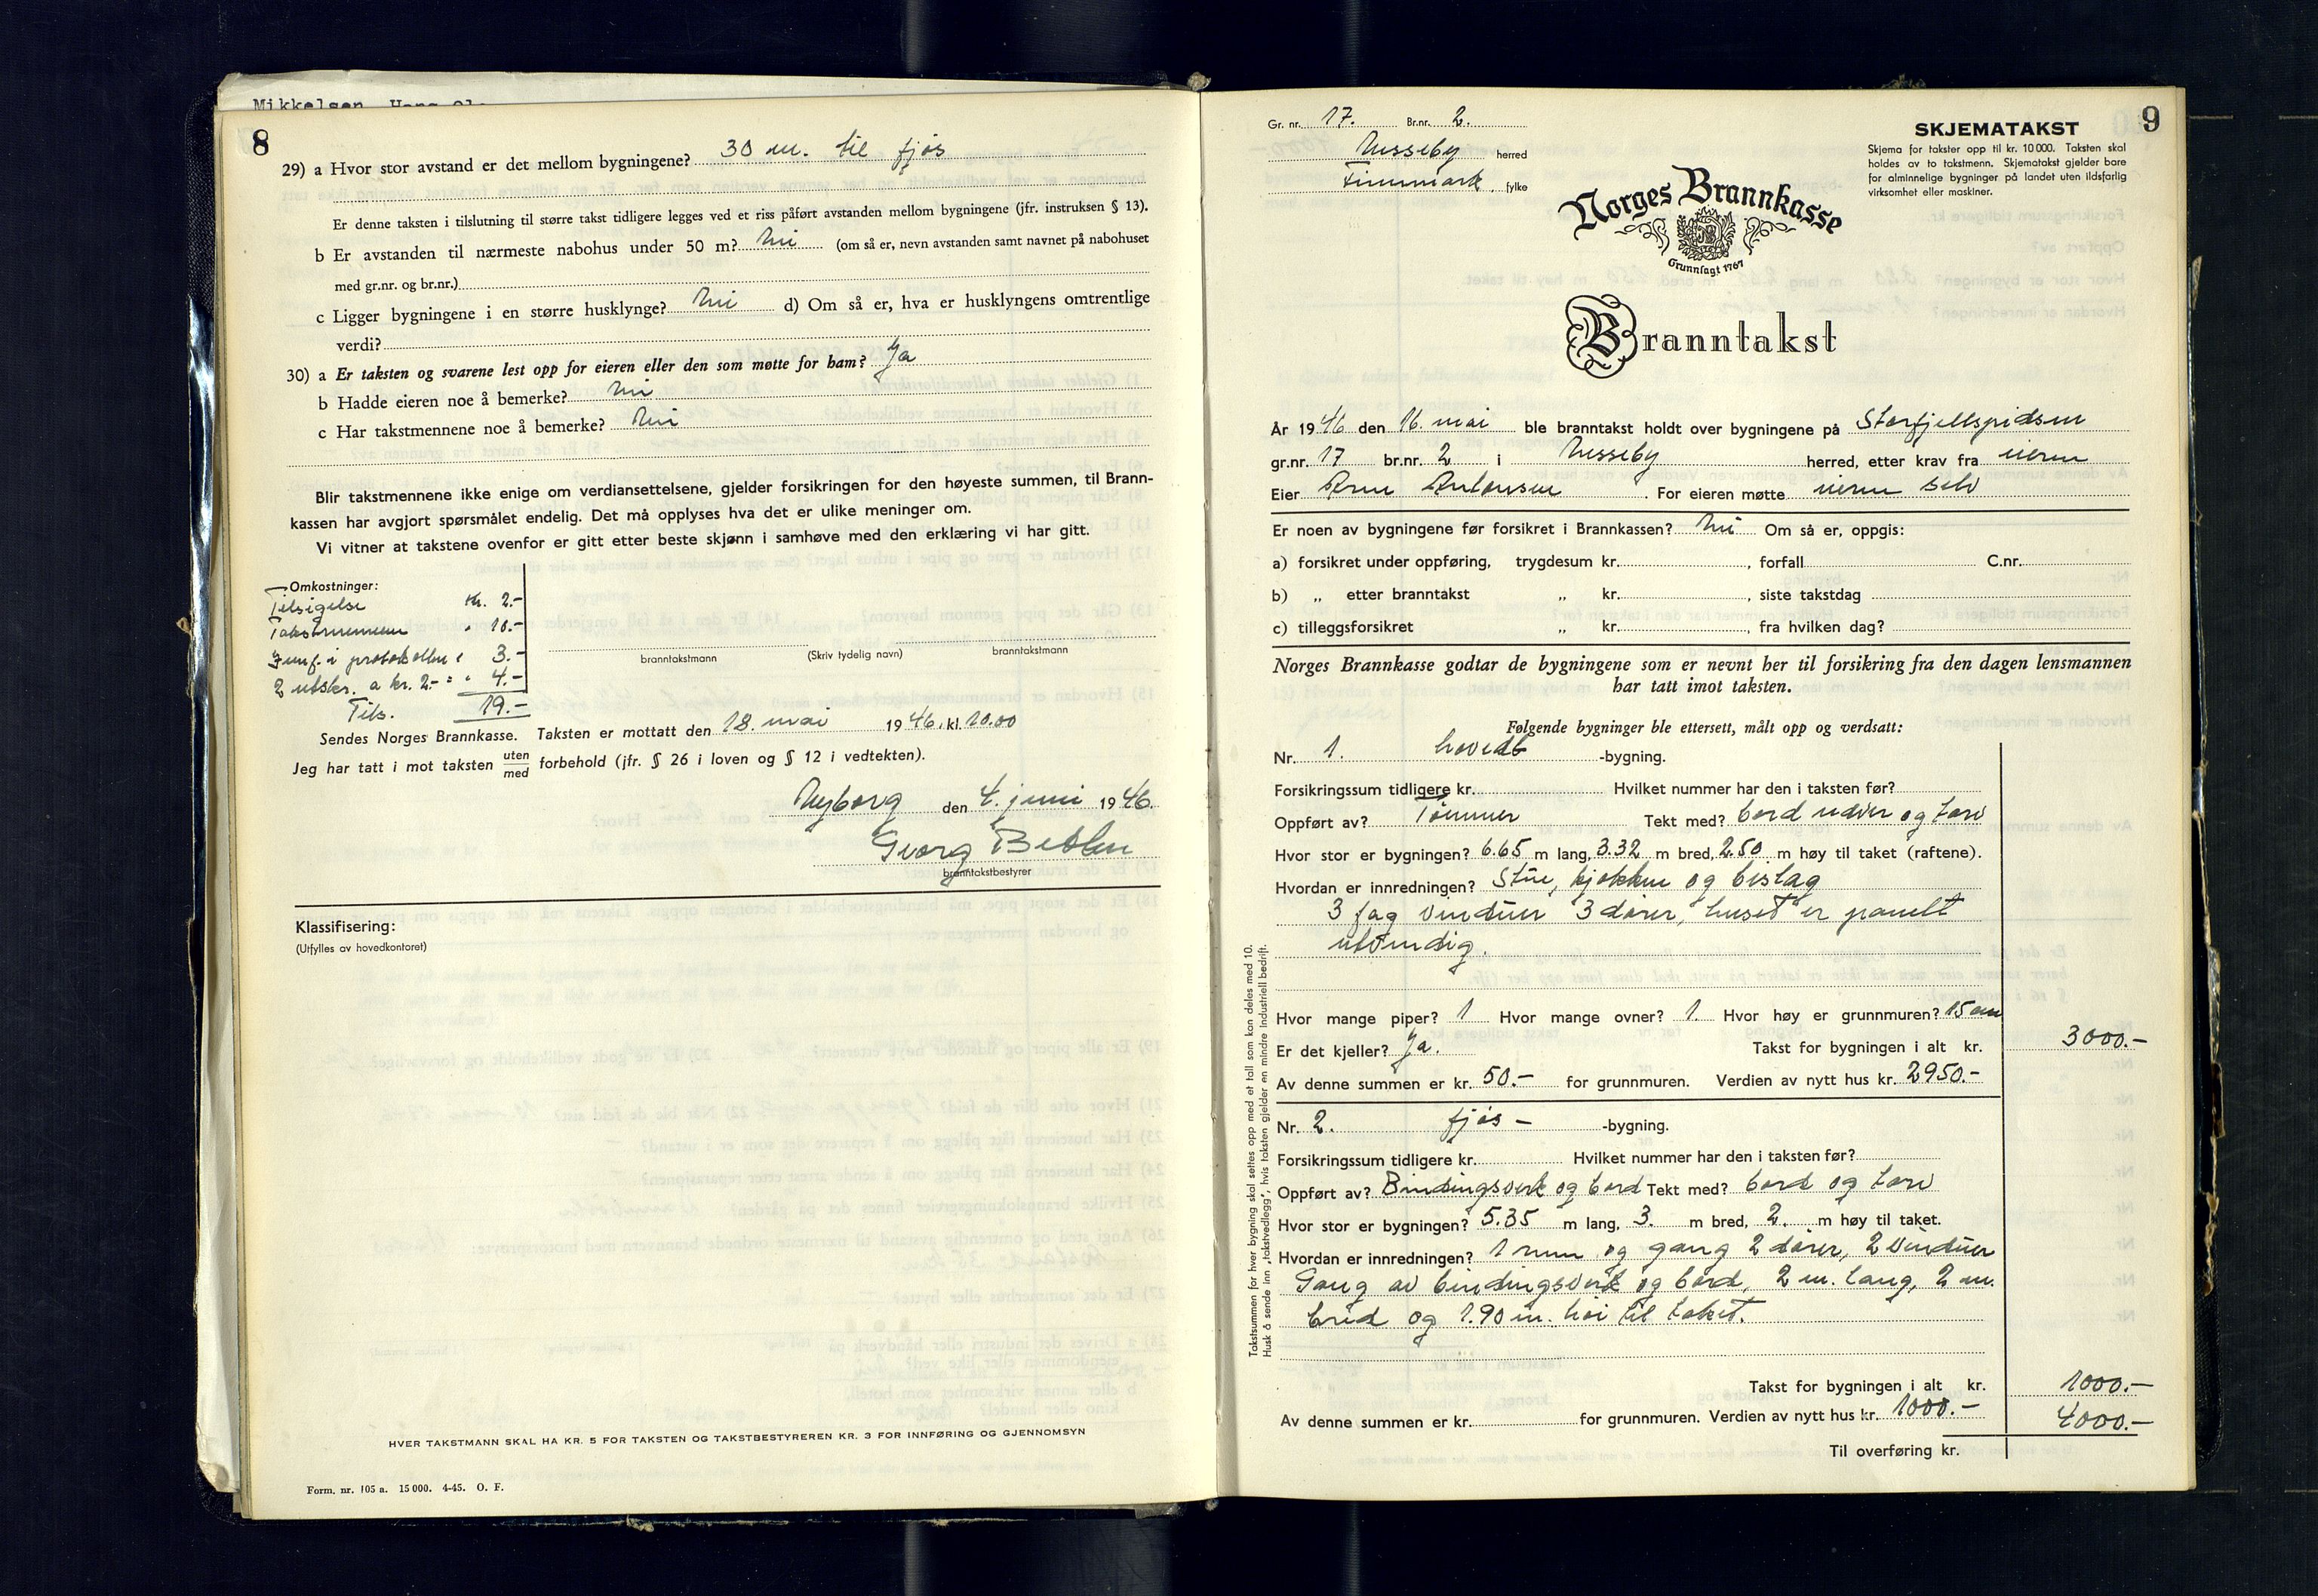 Mikkelsen, Hans Ol
8
29) a Hvor stor avstand er det mellom bygningene? 30 m. til fjøs
Er denne taksten i tilslutning til større takst tidligere legges ved et riss påført avstanden mellom bygningene (jfr. instruksen § 13).
b Er avstanden til nærmeste nabohus under 50 m? Nei (om så er, nevn avstanden samt navnet på nabohuset
med gr.nr. og br.nr.)
c Ligger bygningene i en større husklynge? Nei d) Om så er, hva er husklyngens omtrentlige
verdi?
30) a Er taksten og svarene lest opp for eieren eller den som møtte for ham? Ja
b Hadde eieren noe å bemerke? Nei
c Har takstmennene noe å bemerke? Nei
Blir takstmennene ikke enige om verdiansettelsene, gjelder forsikringen for den høyeste summen, til Brann-
kassen har avgjort spørsmålet endelig. Det må opplyses hva det er ulike meninger om.
Vi vitner at takstene ovenfor er gitt etter beste skjønn i samhøve med den erklæring vi har gitt.
Omkostninger:
Tilsigelse Kr. 2.-
Takstmennene " 10.-
Innf. i protokollen " 3.-
2 utskr. a kr. 2.- = " 4.-
Tils. 19.-
branntakstmann (Skriv tydelig navn) branntakstmann
Sendes Norges Brannkasse. Taksten er mottatt den 18. mai 1946. kl. 10.00
Jeg har tatt i mot taksten uten/med forbehold (jfr. § 26 i loven og § 12 i vedtekten).
Nyborg den 4. juni 1946.
Georg Betten
branntakstbestyrer
Klassifisering:
(Utfylles av hovedkontoret)
HVER TAKSTMANN SKAL HA KR. 5 FOR TAKSTEN OG TAKSTBESTYREREN KR. 3 FOR INNFØRING OG GJENNOMSYN
Form. nr. 105 a. 15 000. 4-45. O. F.
9
Gr. nr. 17. Br.nr. 2.
Nesseby herred
Finnmark fylke
SKJEMATAKST
Skjema for takster opp til kr. 10 000. Taksten skal
holdes av to takstmenn. Skjematakst gjelder bare
for alminnelige bygninger på landet uten ildsfarlig
virksomhet eller maskiner.
Norges Brannkasse
Grunnlagt 1767
Branntakst
År 1946 den 16. mai ble branntakst holdt over bygningene på Storfjellspidsen
gr.nr. 17 br.nr. 2 i Nesseby herred, etter krav fra eieren
Eier Arne Antonsen. For eieren møtte eieren selv
Er noen av bygningene før forsikret i Brannkassen? Nei Om så er, oppgis:
a) forsikret under oppføring, trygdesum kr. , forfall C.nr.
b) „ etter branntakst „ kr. , siste takstdag
c) tilleggsforsikret „ kr. , fra hvilken dag?
Norges Brannkasse godtar de bygningene som er nevnt her til forsikring fra den dagen lensmannen
har tatt imot taksten.
Følgende bygninger ble ettersett, målt opp og verdsatt:
Nr. 1. hovedb -bygning.
Forsikringssum tidligere kr. Hvilket nummer har den i taksten før?
Oppført av? Tømmer Tekt med? bord never og torv
Hvor stor er bygningen? 6.65 m lang, 3.32 m bred, 2.50 m høy til taket (raftene).
Hvordan er innredningen? Stue, kjøkken og bislag
3 fag vinduer 3 dører, huset er panelt
utvendig.
Hvor mange piper? 1 Hvor mange ovner? 1. Hvor høy er grunnmuren? 15 cm
Er det kjeller? Ja. Takst for bygningen i alt kr. 3000.-
Av denne summen er kr. 50.- for grunnmuren. Verdien av nytt hus kr. 2950.-
Nr. 2. fjøs- -bygning.
Forsikringssum tidligere kr. Hvilket nummer har den i taksten før?
Oppført av? Bindingsverk og bord Tekt med? bord og torv
Hvor stor er bygningen? 5.35 m lang, 3. m bred, 2. m høy til taket.
Hvordan er innredningen? 1 rum og gang 2 dører, 2 vinduer
Gang av bindingsverk og bord, 2 m. lang, 2 m.
bred og 1.90 m. høi til taket.
Takst for bygningen i alt kr. 1000.-
Av denne summen er kr. for grunnmuren. Verdien av nytt hus kr. 1000.-
4000.-
Til overføring kr.
Takstsummen for hver bygning skal settes opp med et tall som kan deles med 10.
Husk å sende inn „takstvedlegg", hvis taksten gjelder en mindre industriell bedrift.